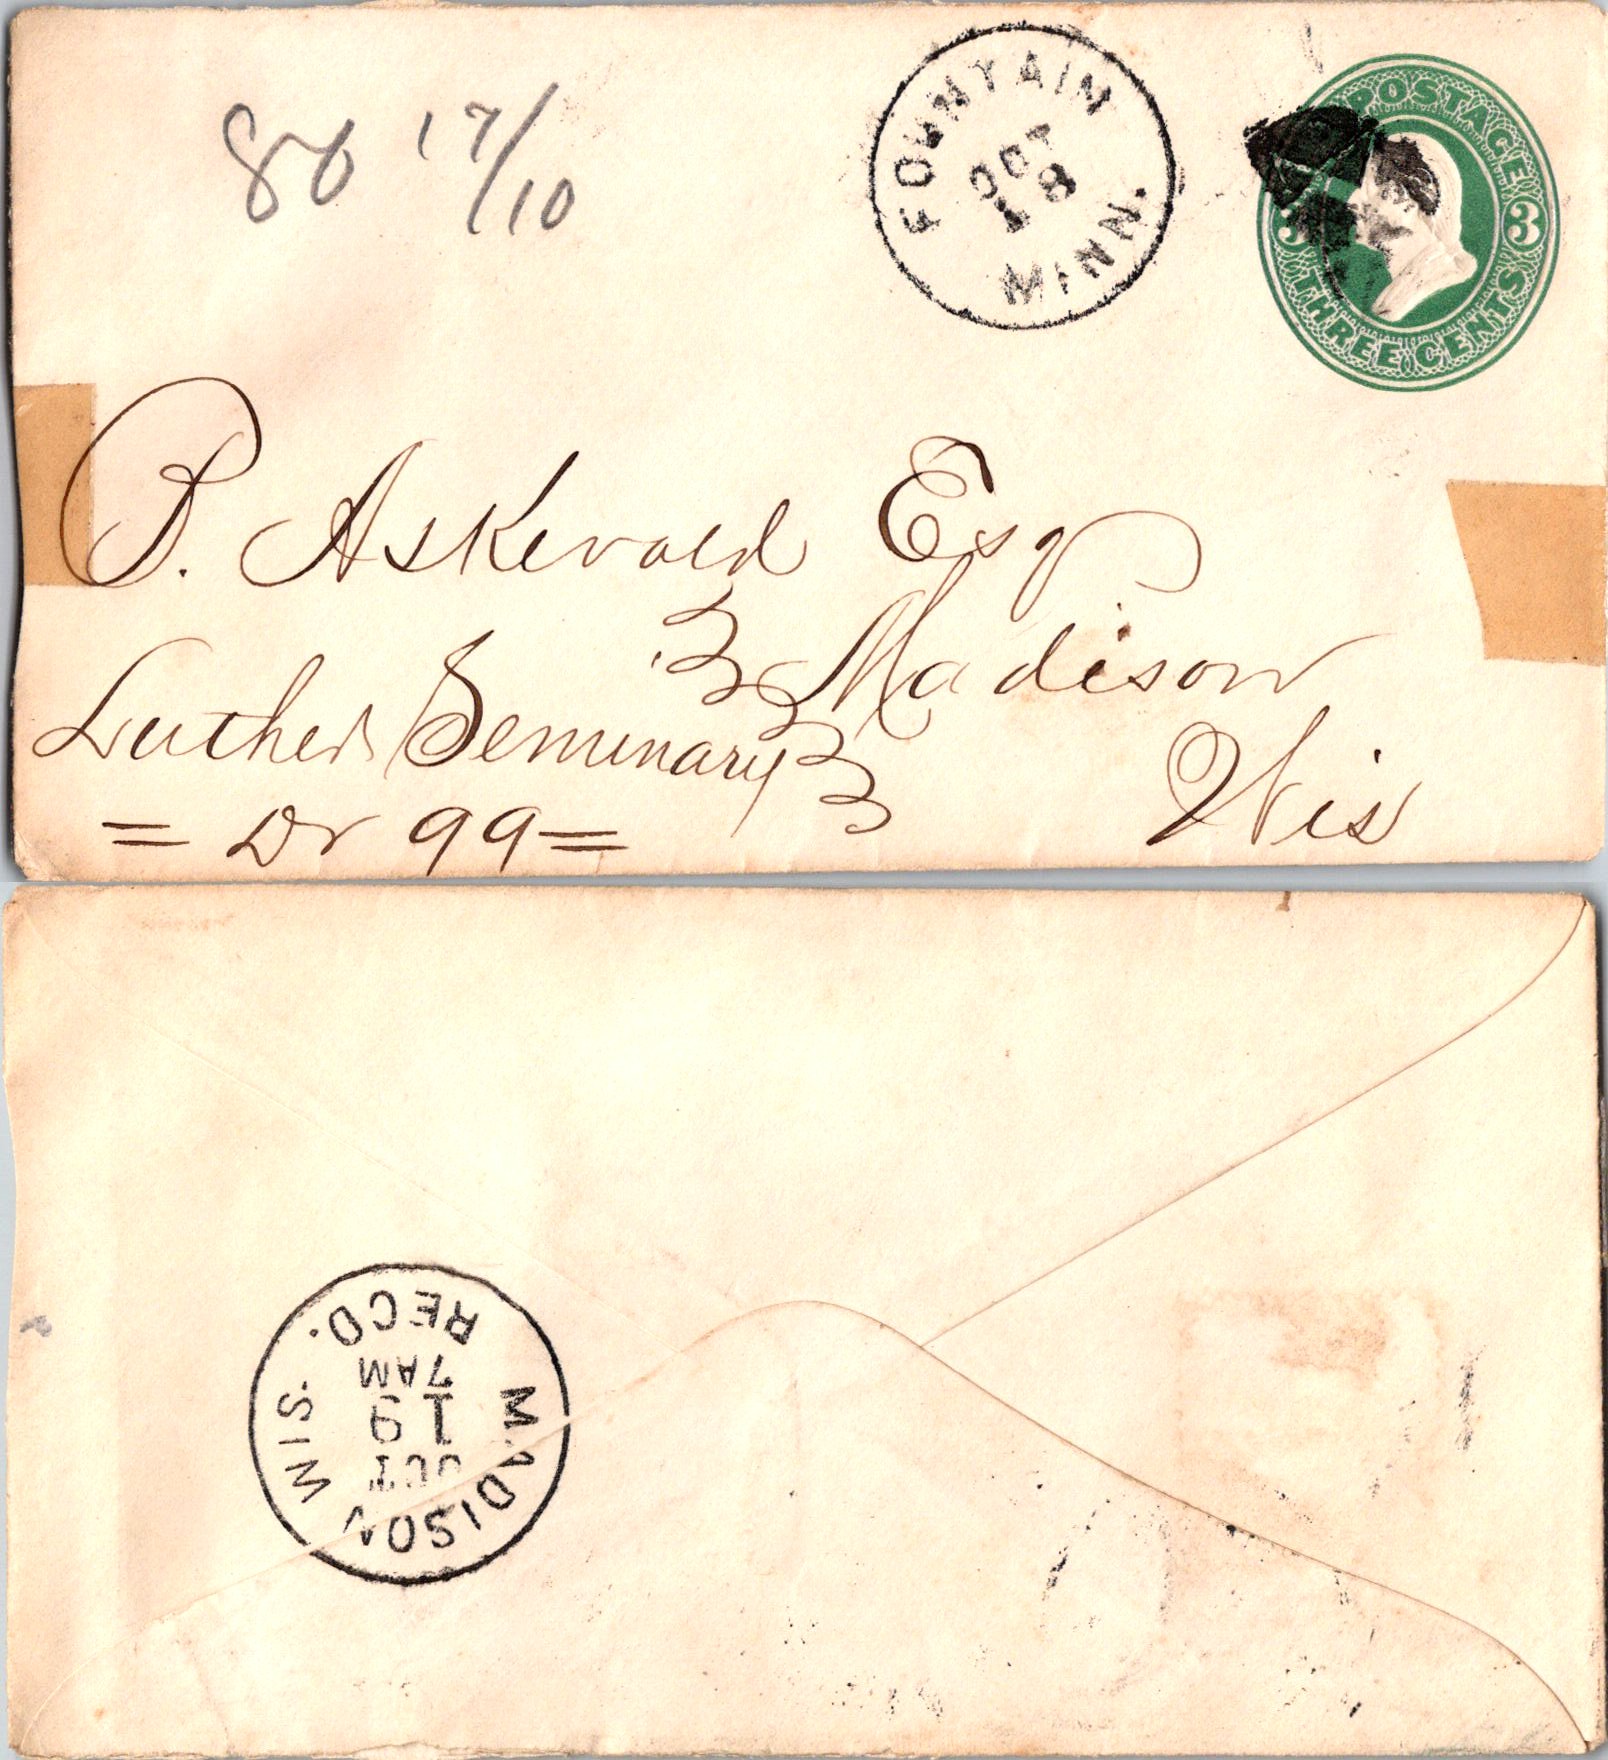 86 17/10
FOUNTAIN
OCT
18
MINN.
POSTAGE
3 3
THREE CENTS
B. Askevold Esq
Madison
Luther Seminary
Wis
= Dr 99 =
MADISON WIS.
OCT
19
7AM
RECD.